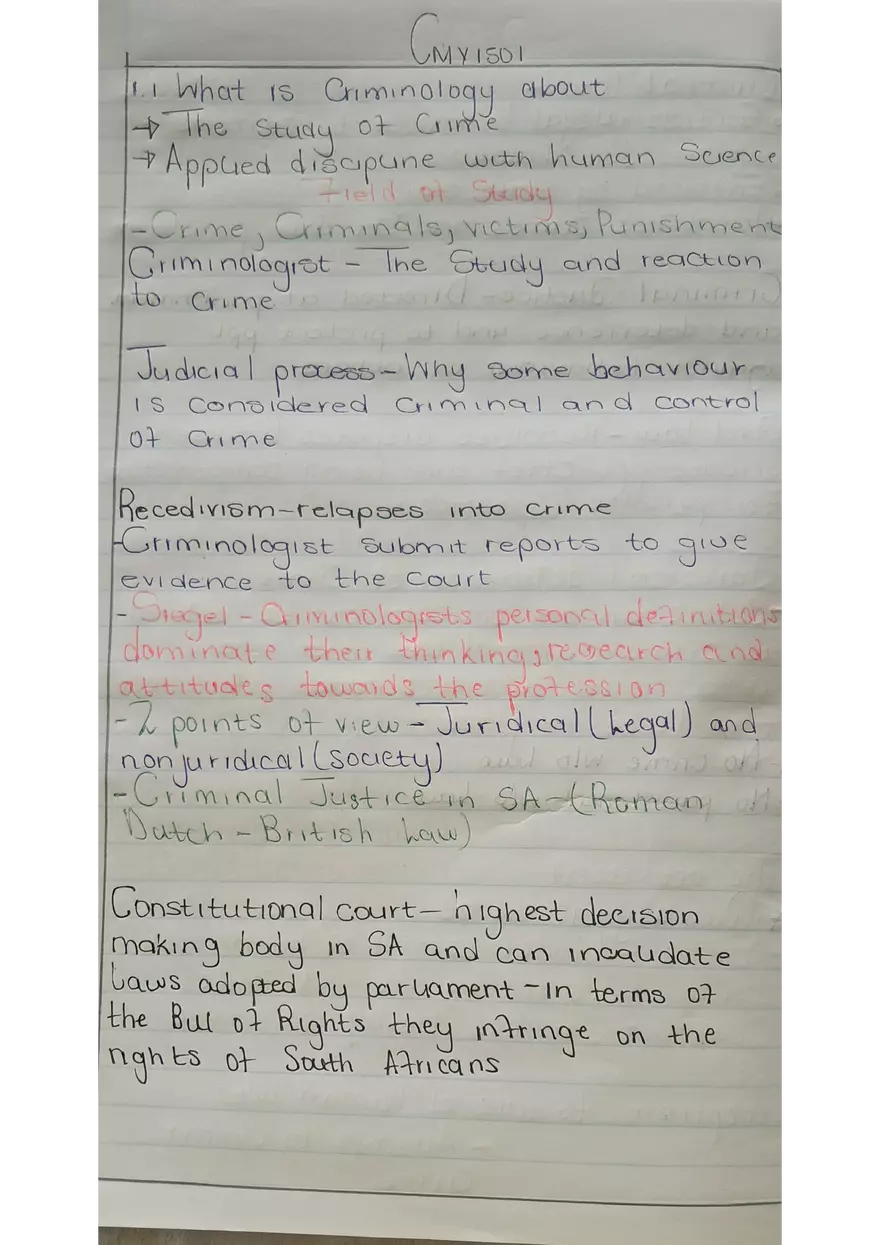 CMY1501
1.1 What is Criminology about
→ The Study of Crime
→ Applied discipline with human Science
Field of Study
- Crime, Criminals, victims, Punishment
Criminologist - The Study and reaction
to crime
Judicial process - Why some behaviour
is considered criminal and control
of crime
Recedivism - relapses into crime
- Criminologist submit reports to give
evidence to the court
- Siegel - Criminologists personal definitions
dominate their thinking, research and
attitudes towards the profession
- 2 points of view - Juridical (Legal) and
nonjuridical (society)
- Criminal Justice in SA - (Roman
Dutch - British Law)
Constitutional court - highest decision
making body in SA and can invalidate
Laws adopted by parliament - in terms of
the Bill of Rights they infringe on the
rights of South Africans